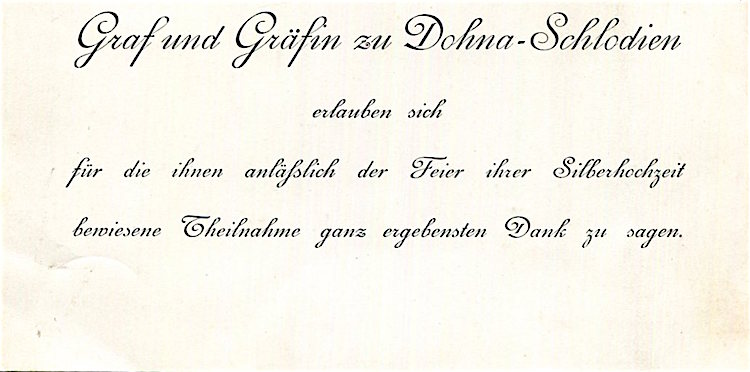 Graf und Gräfin zu Dohna-Schlodien
erlauben sich
für die ihnen anläßlich der Feier ihrer Silberhochzeit
bewiesene Theilnahme ganz ergebensten Dank zu sagen.